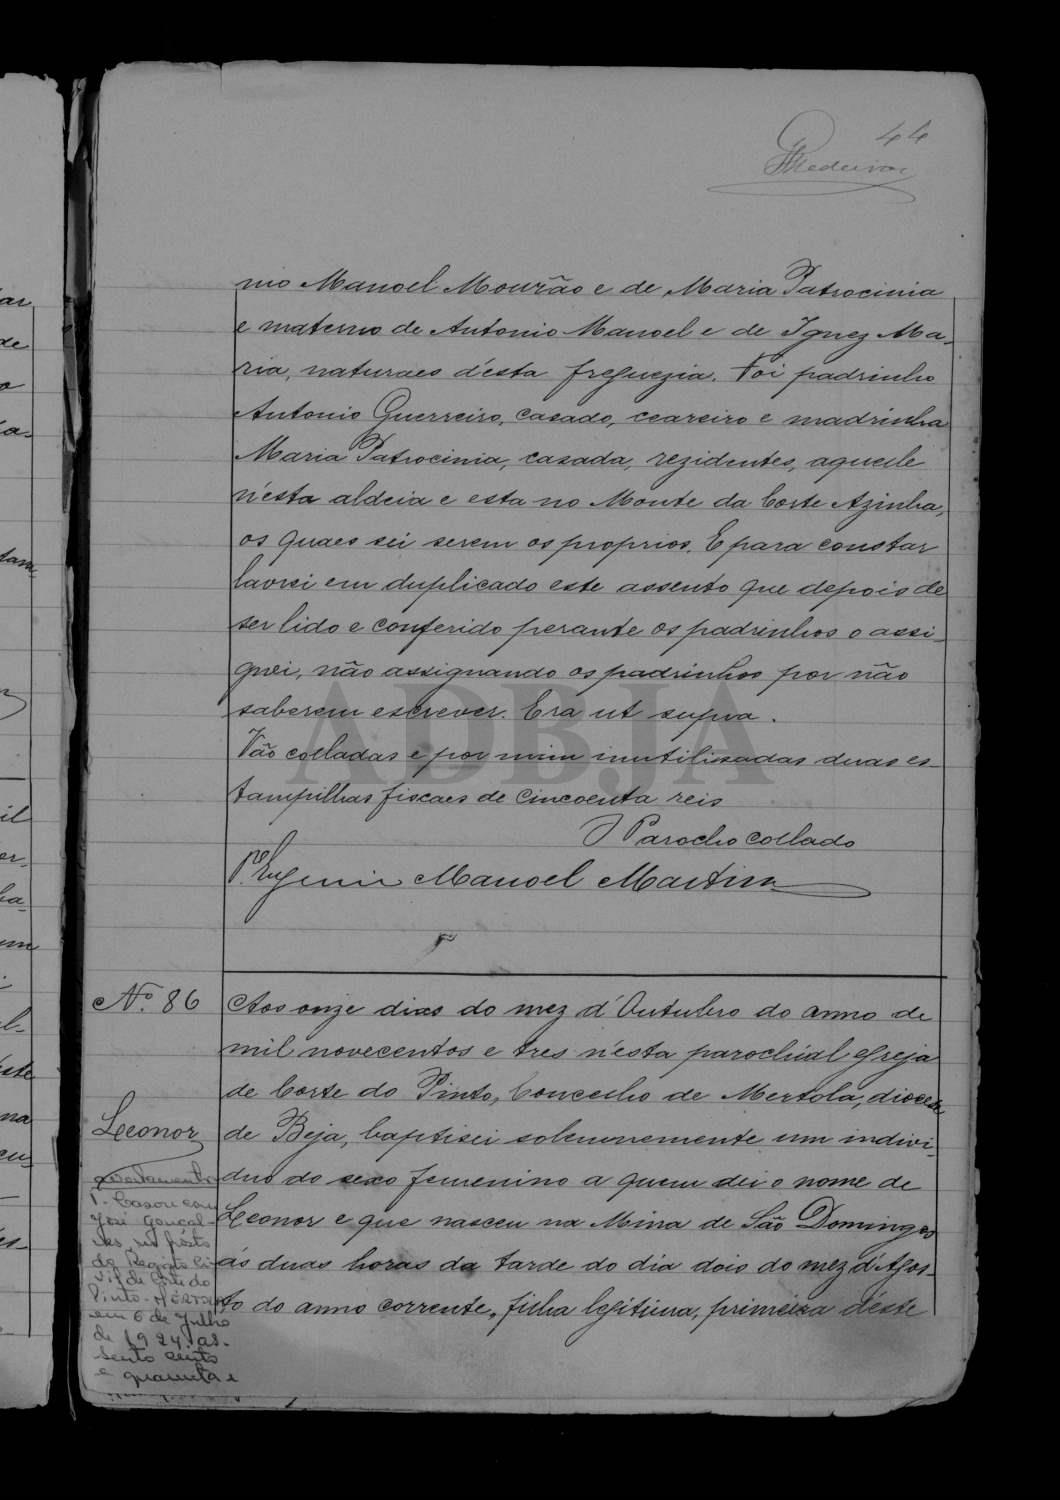 44
Medeiros
nio Manoel Mourão e de Maria Patrocinia
e materno de Antonio Manoel e de Ignez Ma-
ria, naturaes d'esta freguezia. Foi padrinho
Antonio Guerreiro, casado, ceareiro e madrinha
Maria Patrocinia, casada, rezidentes, aquelle
n'esta aldeia e esta no Monte da Corte Azinha,
os quaes sei serem os proprios. E para constar
lavrei em duplicado este assento que depois de
ser lido e conferido perante os padrinhos o assi-
gnei, não assignando os padrinhos por não
saberem escrever. Era ut supra.
Vão colladas e por mim inutilisadas duas es-
tampilhas fiscaes de cincoenta reis
O Parocho collado
P.e Eugenio Manoel Martins
ADBJA
Nº 86
Aos onze dias do mez d'Outubro do anno de
mil novecentos e tres n'esta parochial Egreja
de Corte do Pinto, Concelho de Mertola, diocese
de Beja, baptisei solemnemente um indivi-
duo do sexo femenino a quem dei o nome de
Leonor e que nasceu na Mina de São Domingos
ás duas horas da tarde do dia dois do mez d'Agos-
to do anno corrente, filha legitima, primeira d'este
Leonor
Averbamento
1º Casou com
José Gonçal-
ves no posto
do Registo Ci-
vil de Corte do
Pinto - Mértola
em 6 de Julho
de 1924. As-
sento cento
e quarenta e